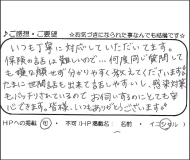 ♪ご感想・ご要望 ☆お気づきになられた事なんでも結構です☆
いつも丁寧に対応していただいてます。
保険の話は難しいので…何度同じ質問しても
嫌な顔せず分かりやすく教えてくださいます。
たまに世間話も出来て話しやすいし、感染対策
もバッチリされているのでお伺いするのにとても安
心できます。皆様、いつもありがとうございます。
HPへの掲載 可 ・ 不可 (HP掲載 名前 ・ イニシャル )